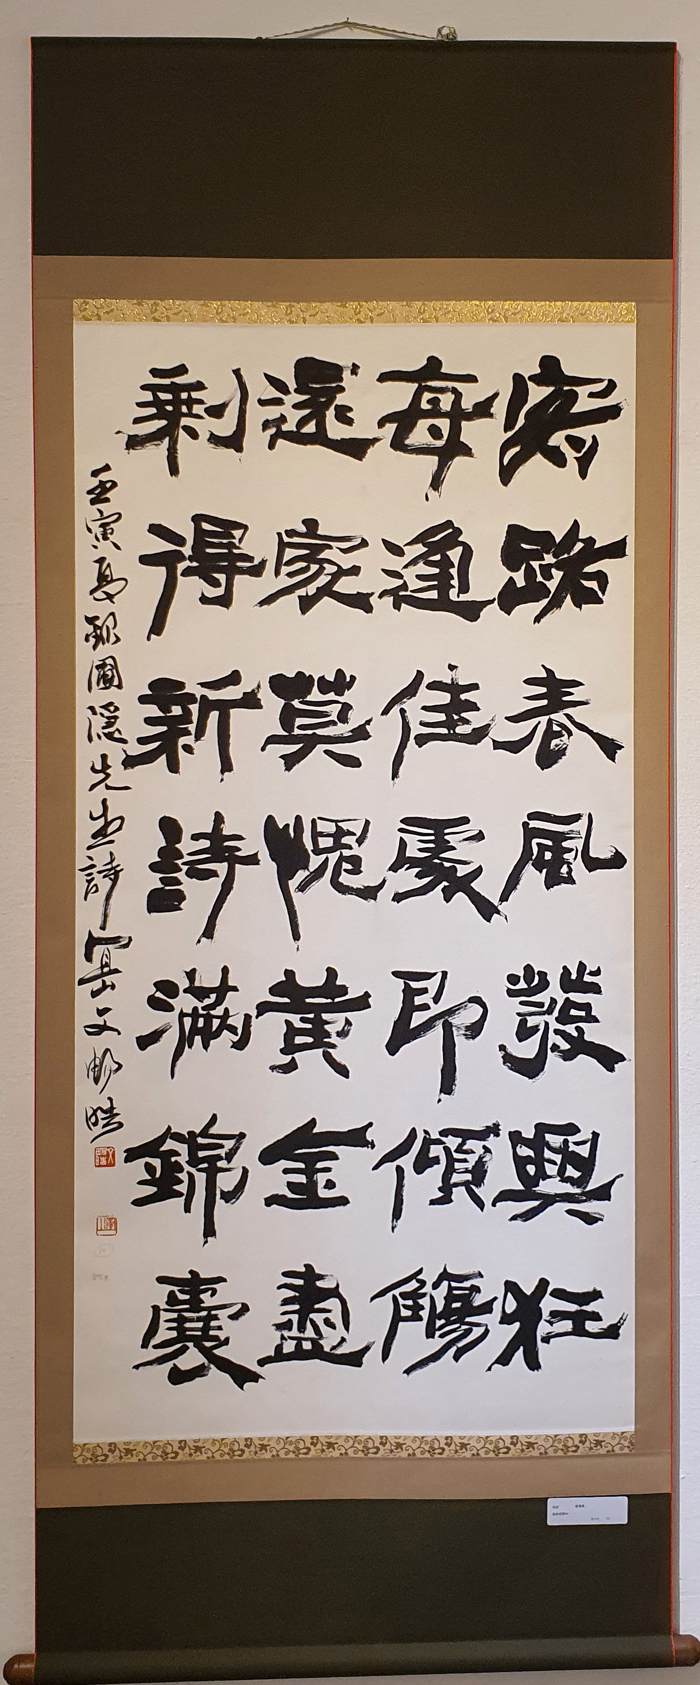 客路春風發興狂
每逢佳處即傾觴
還家莫愧黃金盡
剩得新詩滿錦囊
壬寅夏錄圃隱先生詩